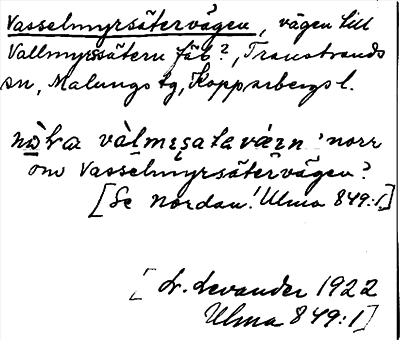 Vasselmyrsätervägen, vägen till
Vallmyrssätern fäb?, Transtrands
sn, Malungs tg, Kopparbergs l.
nòḷa vàlmı̣sataváẹn 'norr
om Vasselmyrsätervägen?
[Se nordan! Ulma 849:1]
[L. Levander 1922
Ulma 849:1]